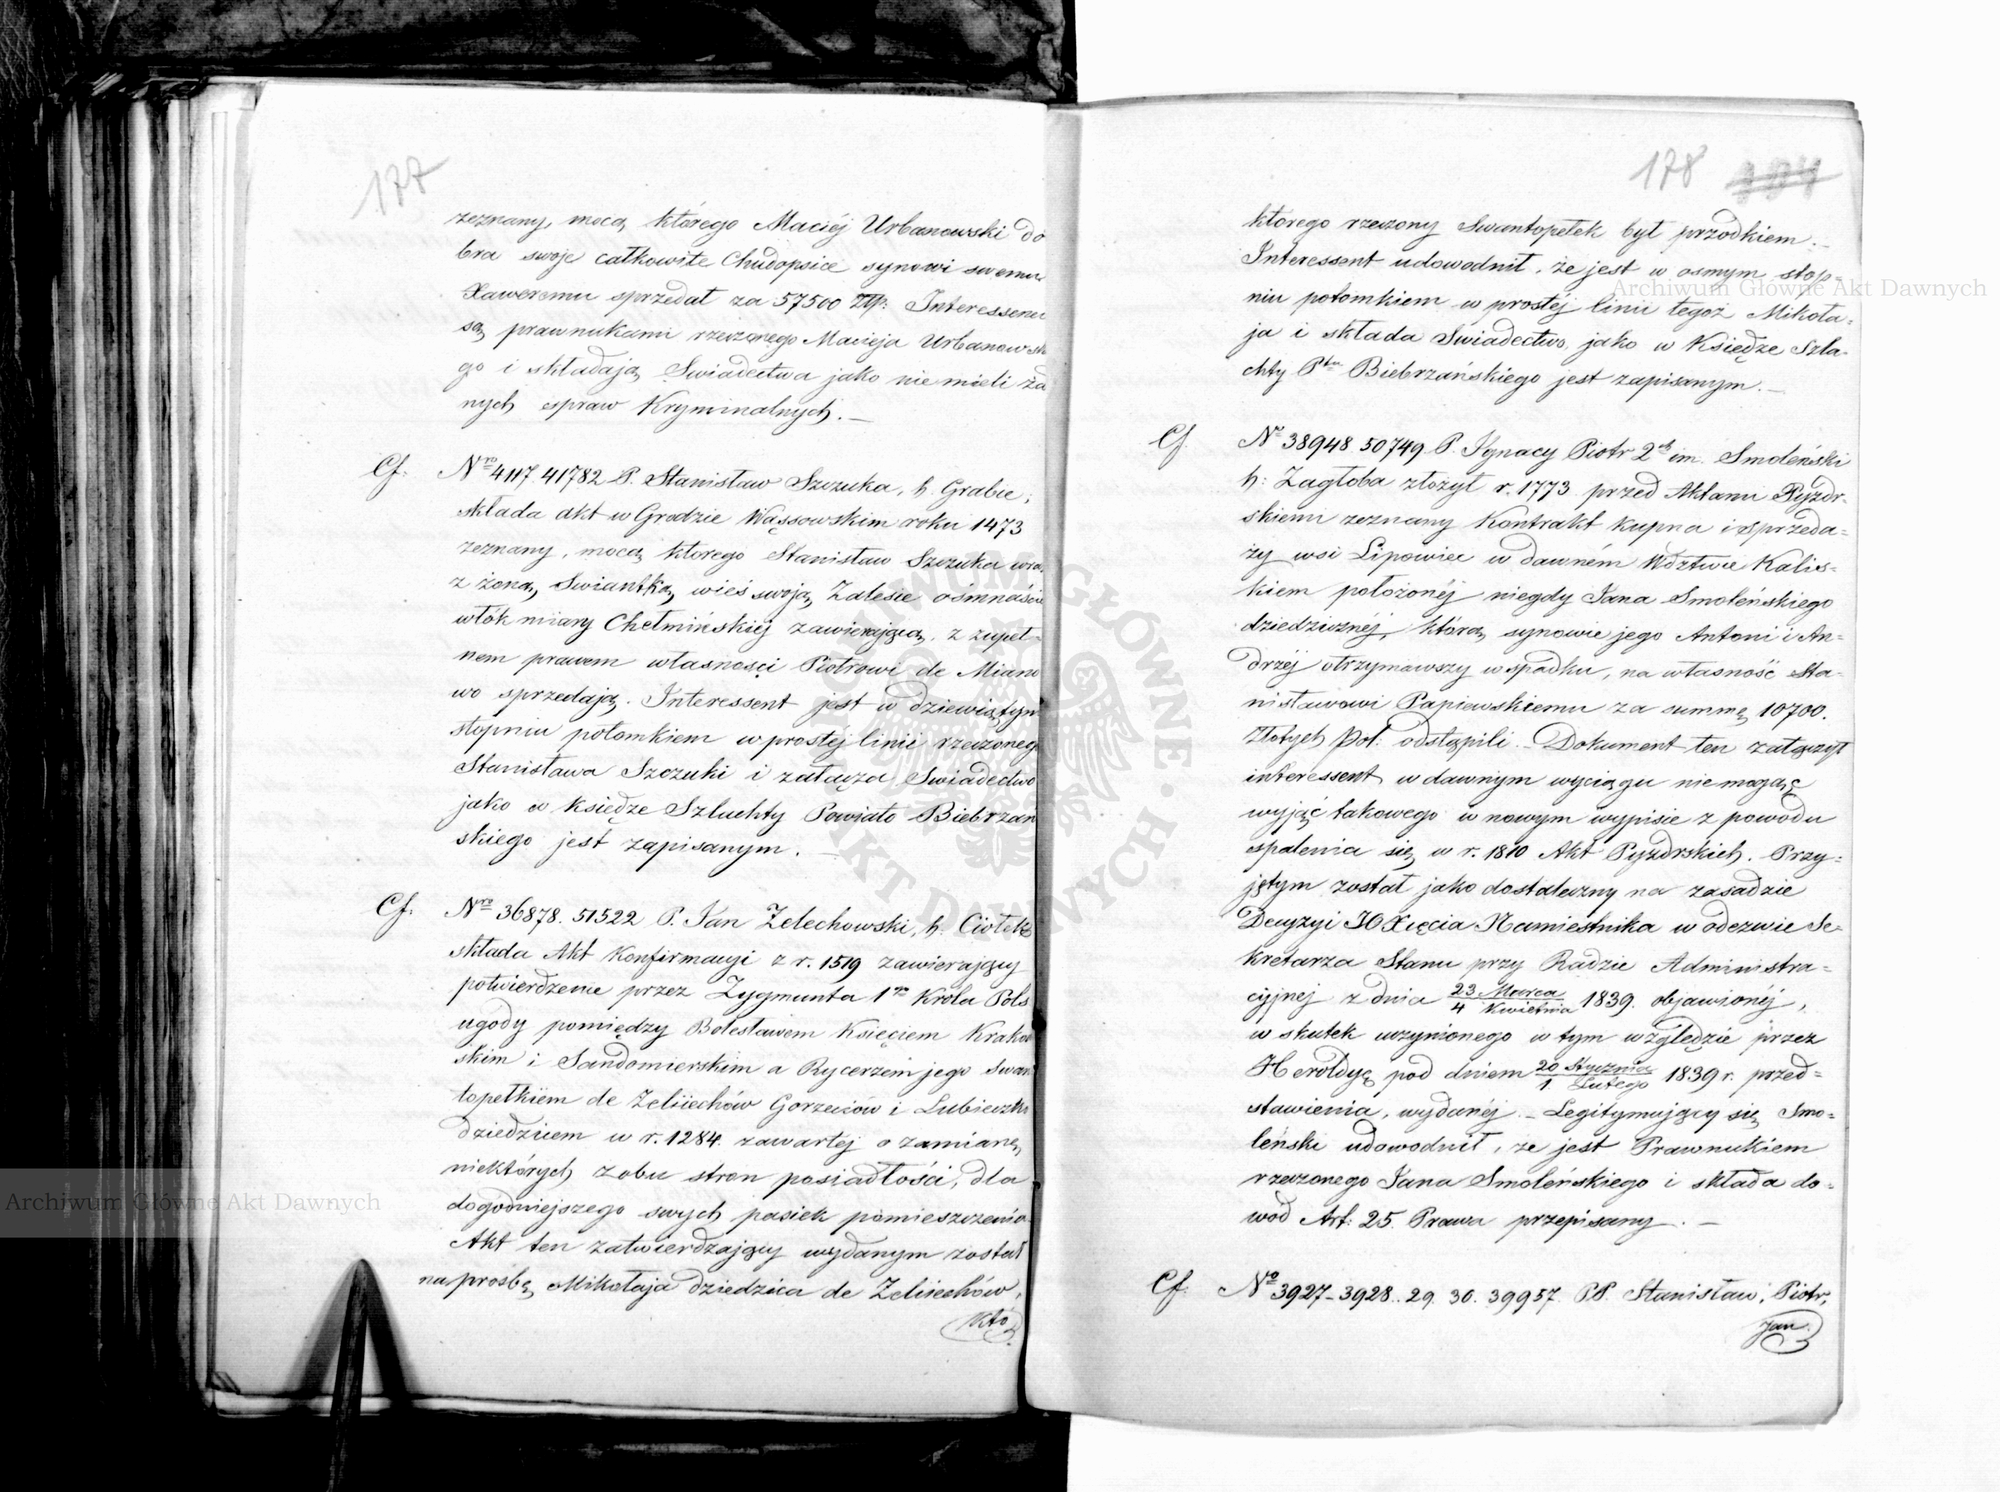 177
zeznany, mocą którego Maciéj Urbanowski do
bra swoje całkowite Chudopsice synowi swemu
Xaweremu sprzedał za 57500 Złp. Interessenci
są prawnukami rzeczonego Macieja Urbanowski
go i składają Swiadectwa jako nie mieli ża
nych spraw Kryminalnych. —
Cf. Nro 4117 41782 P. Stanisław Szczuka, h. Grabie,
składa akt w Grodzie Wąssowskim roku 1473
zeznany, mocą ktorego Stanisław Szczuka wra
z żoną Swiantką, wieś swoją Zalesie ośmnaście
włók miary Chełmińskiéj zawierającą, z zupeł-
nem prawem własności Piotrowi de Miano
wo sprzedają. Interessent jest w dziewiątym
stopniu potomkiem w prostéj linii rzeczonego
Stanisława Szczuki i załącza Swiadectwo
jako w Księdze Szlachty Powiato Biebrzań
skiego jest zapisanym. —
Cf. Nro 36878. 51522 P. Jan Zelechowski, h. Ciołek
składa Akt Konfirmacyi z r. 1519 zawierający
potwierdzenie przez Zygmunta 1go Króla Pols
ugody pomiędzy Bolesławem Księciem Krakow
skim i Sandomierskim a Rycerzem jego Swan
topełkiem de Zeliechów Gorzeczów i Lubieczki
dziedzicem w r. 1284. zawartej o zamianę
niektórych z obu stron posiadłości, dla
dogodniejszego swych pasiek pomieszczenia.
Akt ten zatwierdzający wydanym został
na prosbę Mikołaja dziedzica de Zeliechów,
któ
178 104
ktorego rzeczony Swantopełek był przodkiem. —
Interessent udowodnił, że jest w osmym stop-
niu potomkiem w prostéj linii tegoż Mikoła-
ja i składa Swiadectwo, jako w Księdze Szla-
chty Ptu Biebrzańskiego jest zapisanym. —
Cf. No 38948 50749 P. Ignacy Piotr 2ch im. Smoleński
h: Zagłoba złożył r. 1773 przed Aktami Pyzdr-
skiemi zeznany Kontrakt kupna i sprzeda-
ży wsi Lipowiec w dawném Wdztwie Kalis-
kiem położonéj niegdy Jana Smoleńskiego
dziedzicznéj, którą synowie jego Antoni i An-
drzéj otrzymawszy w spadku, na własność Sta-
nisławowi Papiewskiemu za summę 10700.
Złotych Pol. odstąpili. — Dokument ten załączył
interessent w dawnym wyciągu nie mogąc
wyjąć takowego w nowym wypisie z powodu
spalenia się w r. 1810 Akt Pyzdrskich. Przy-
jętym został jako dostateczny na zasadzie
Decyzyi JO Xięcia Namiestnika w odezwie Se-
kretarza Stanu przy Radzie Administra-
cyjnej z dnia 23 Marca / 4 Kwietnia 1839. objawionéj,
w skutek uczynionego w tym względzie przez
Heroldyę pod dniem 20 Stycznia / 1 Lutego 1839 r. przed-
stawienia, wydanéj. — Legitymujący się Smo-
leński udowodnił, że jest Prawnukiem
rzeczonego Jana Smoleńskiego i składa do-
wód Art: 25. Prawa przepisany. —
Cf. No 3927-3928. 29. 30. 39957. PP. Stanisław, Piotr,
Jan
Archiwum Główne Akt Dawnych
Archiwum Główne Akt Dawnych
ARCHIWUM GŁÓWNE AKT DAWNYCH